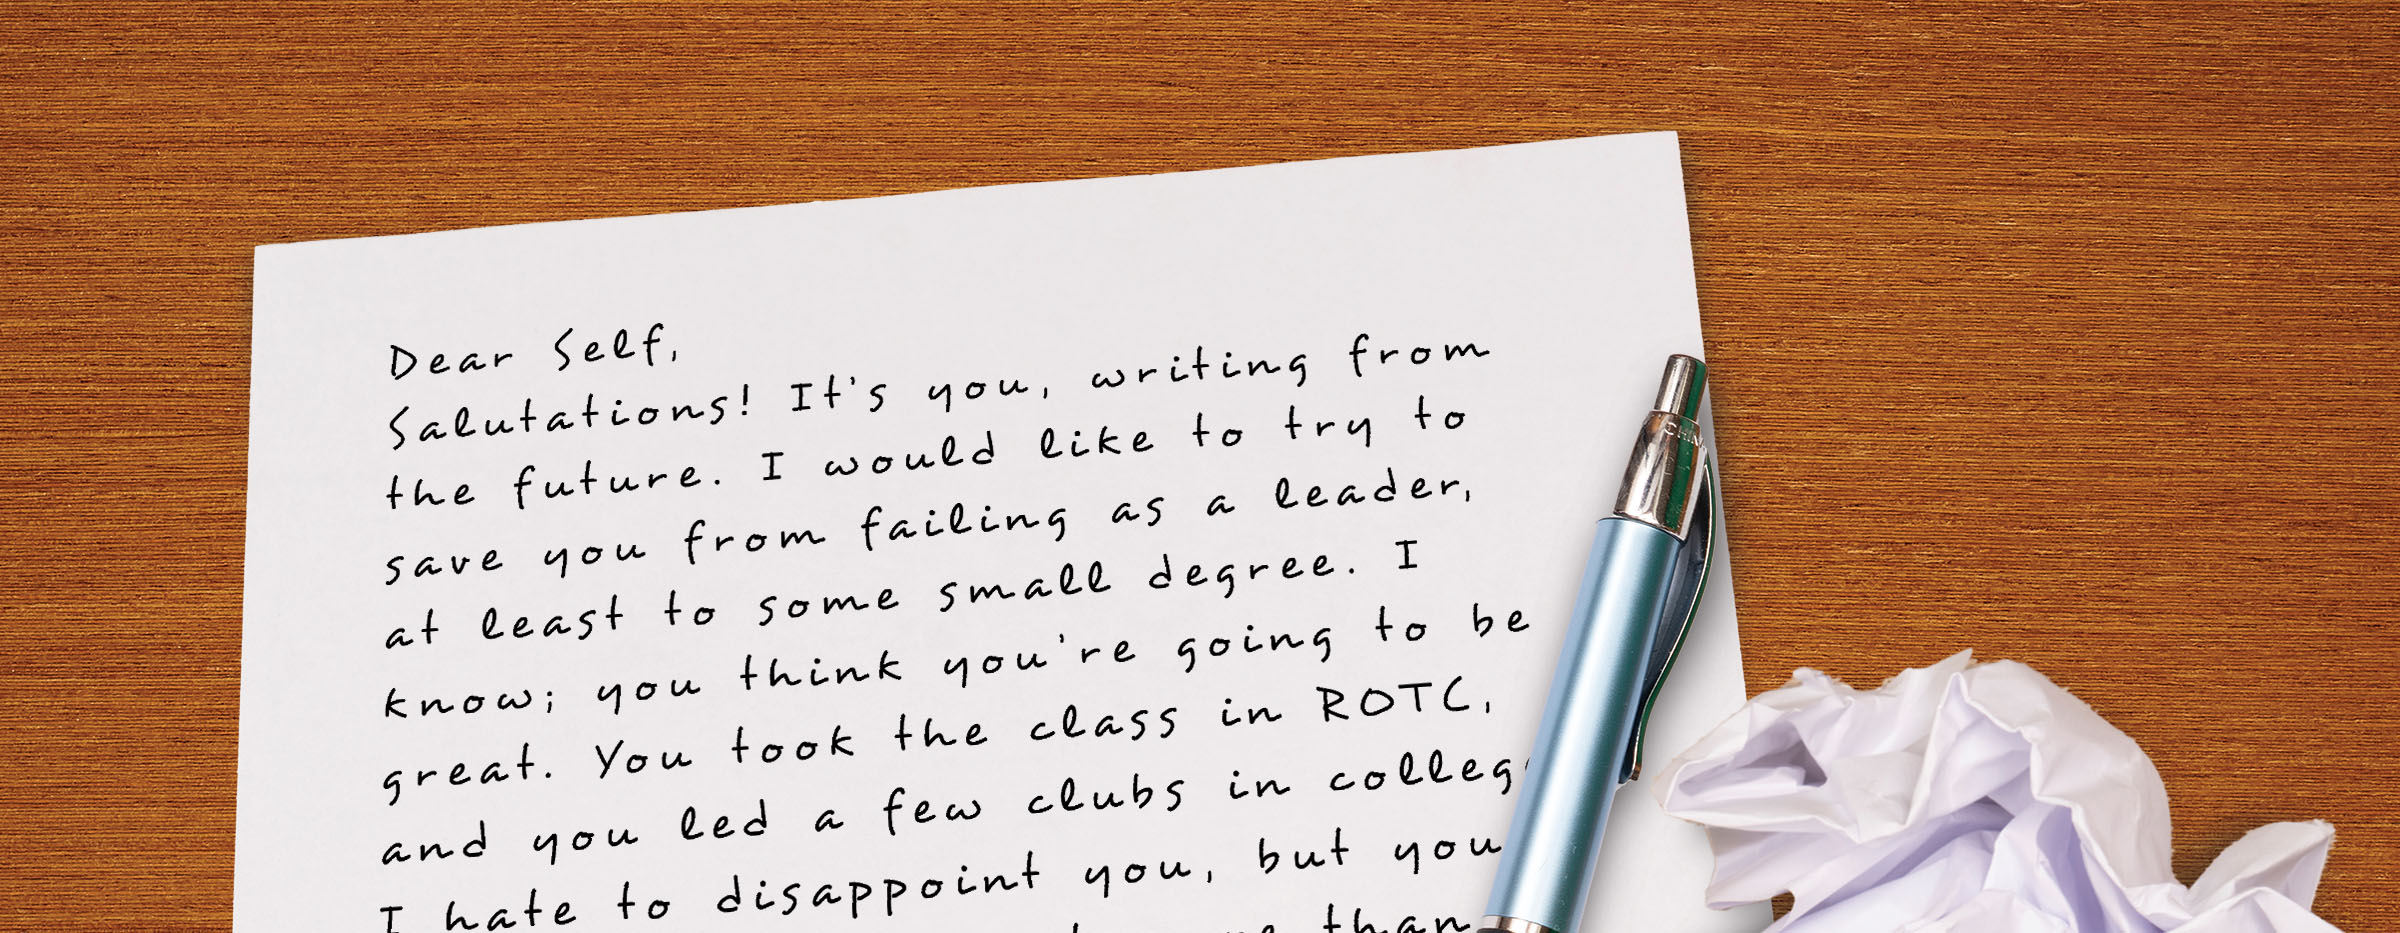 Dear Self,
Salutations! It's you, writing from
the future. I would like to try to
save you from failing as a leader,
at least to some small degree. I
know; you think you're going to be
great. You took the class in ROTC,
and you led a few clubs in colleg
I hate to disappoint you, but you
than